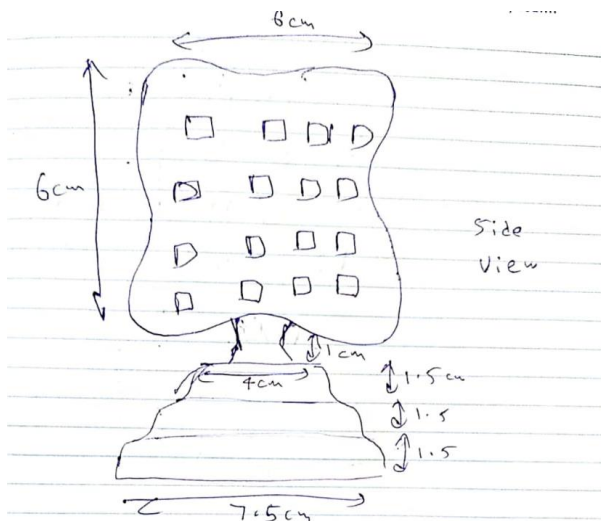 6cm
6cm
Side
View
1cm
4cm
1.5cm
1.5
1.5
7.5cm